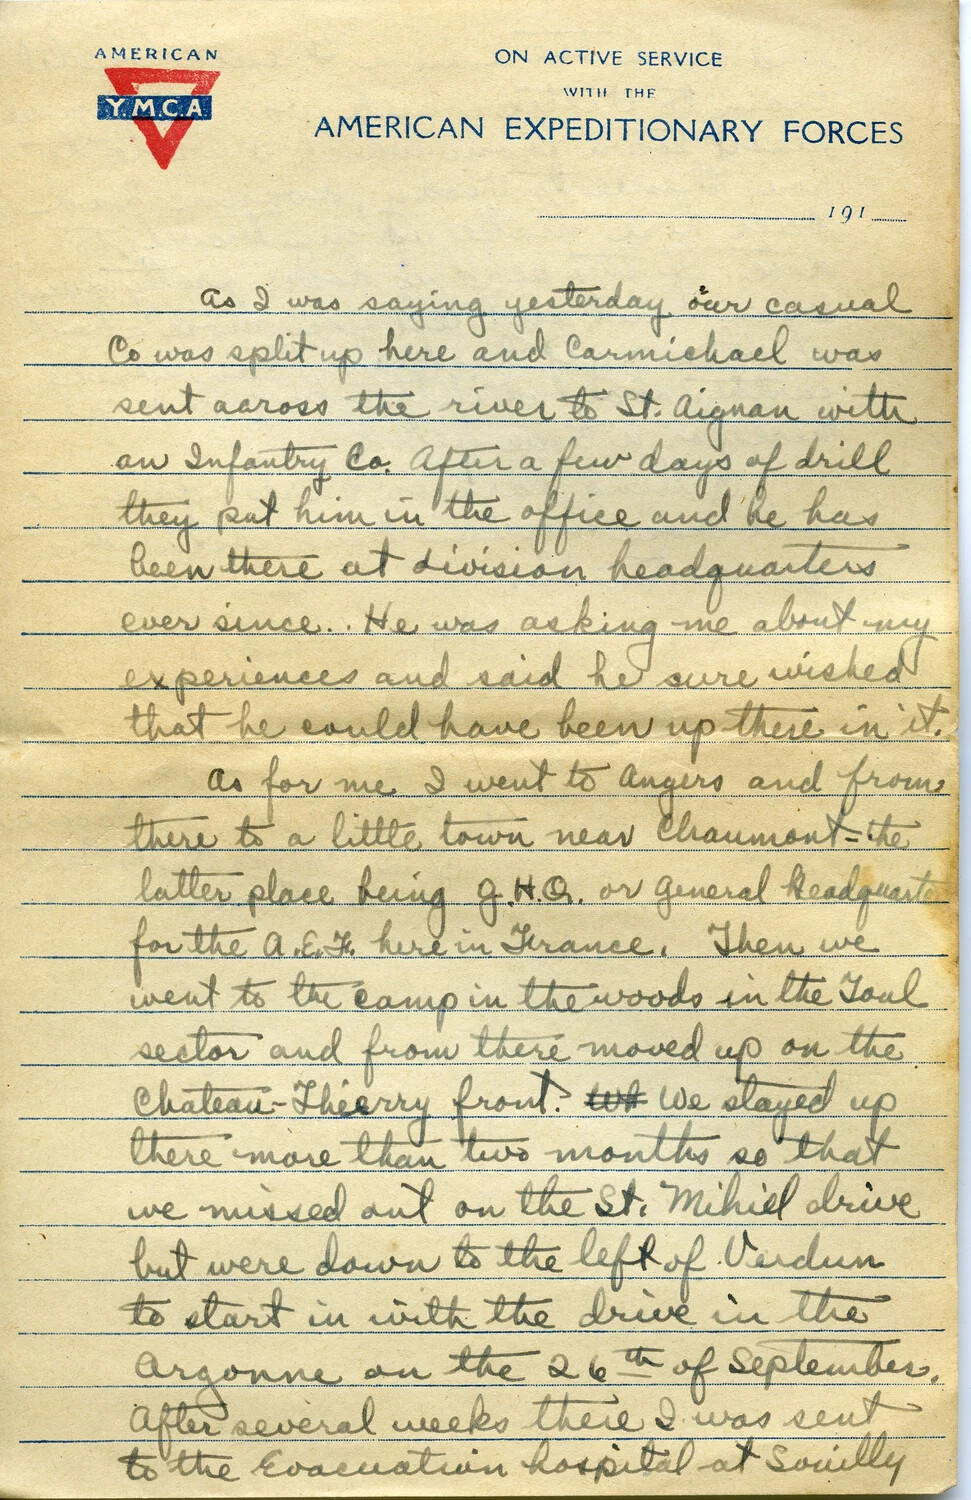 AMERICAN
Y.M.C.A
ON ACTIVE SERVICE
WITH THE
AMERICAN EXPEDITIONARY FORCES
191
As I was saying yesterday our casual
Co was split up here and Carmichael was
sent aaross the river to St. Aignan with
an Infantry Co. After a few days of drill
they put him in the office and he has
been there at division headquarters
ever since. He was asking me about my
experiences and said he sure wished
that he could have been up there in it.
As for me I went to Angers and from
there to a little town near Chaumont - the
latter place being G.H.Q. or General Headquarte
for the A.E.F. here in France. Then we
went to the camp in the woods in the Toul
sector and from there moved up on the
Chateau-Thierry front. We stayed up
there more than two months so that
we missed out on the St. Mihiel drive
but were down to the left of Verdun
to start in with the drive in the
Argonne on the 26th of September.
After several weeks there I was sent
to the Evacuation hospital at Souilly